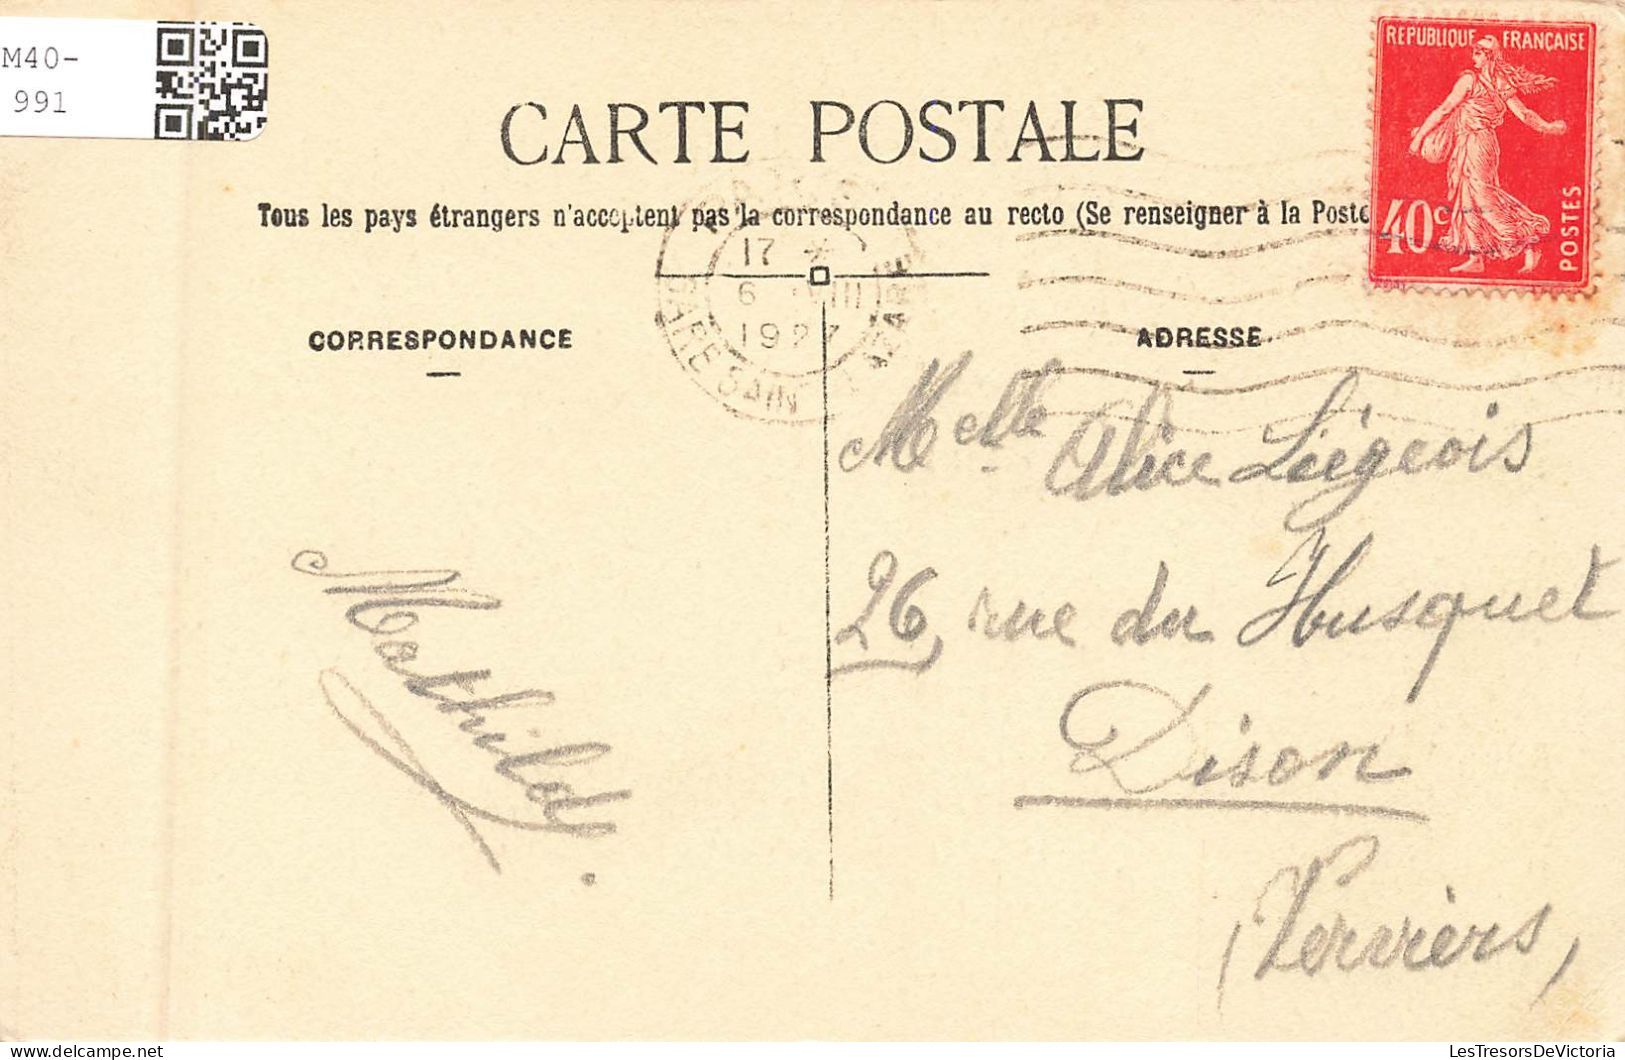 M40-
991
REPUBLIQUE FRANÇAISE
40c
POSTES
CARTE POSTALE
Tous les pays étrangers n'acceptent pas la correspondance au recto (Se renseigner à la Poste
17 *
6 III
1927
GARE SAINT LAZARE
CORRESPONDANCE
ADRESSE
Melle Alice Liégeois
26, rue du Husquet
Dison
(Verviers)
Mathilde.
LesTresorsDeVictoria